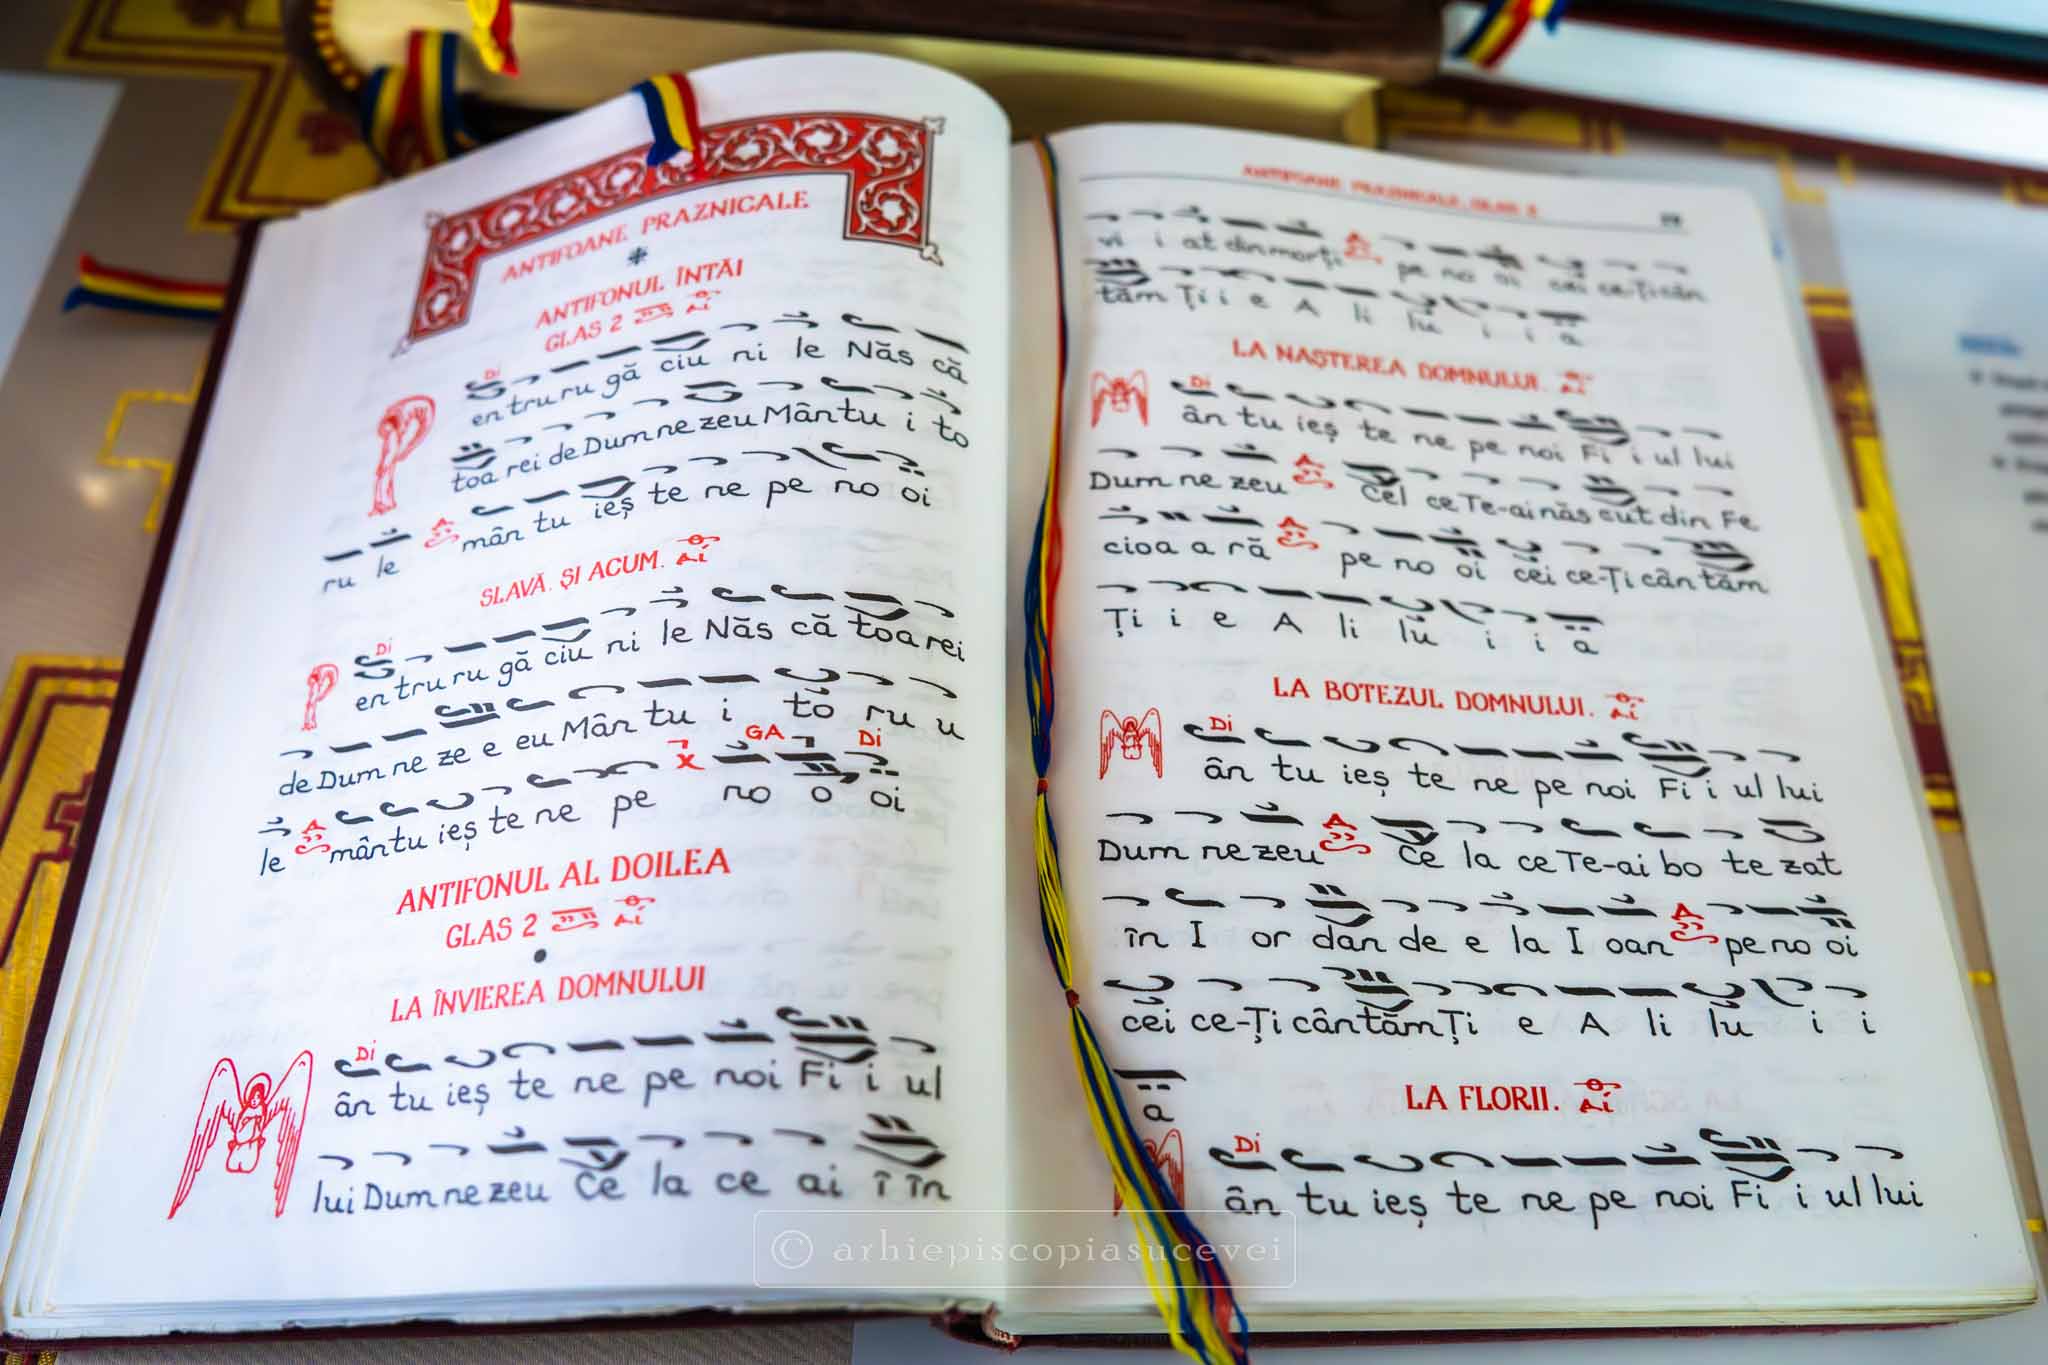 ANTIFOANE PRAZNICALE
ANTIFONUL ÎNTÂI
GLAS 2
Di
en tru ru gă ciu ni le Năs că
toa rei de Dum ne zeu Mân tu i to
ru le mân tu ieș te ne pe no oi
SLAVĂ. ȘI ACUM.
Di
en tru ru gă ciu ni le Năs că toa rei
de Dum ne ze e eu Mân tu i to ru u
GA Di
le mân tu ieș te ne pe no o oi
ANTIFONUL AL DOILEA
GLAS 2
LA ÎNVIEREA DOMNULUI
Di
ân tu ieș te ne pe noi Fi i ul
lui Dum ne zeu Ce la ce ai î în
ANTIFOANE PRAZNICALE, GLAS 2
vi i at din morți pe no oi cei ce-Ți cân
tăm Ți i e A li lu i i a
LA NAȘTEREA DOMNULUI.
Di
ân tu ieș te ne pe noi Fi i ul lui
Dum ne zeu Cel ce Te-ai năs cut din Fe
cioa a ră pe no oi cei ce-Ți cân tăm
Ți i e A li lu i i a
LA BOTEZUL DOMNULUI.
Di
ân tu ieș te ne pe noi Fi i ul lui
Dum ne zeu Ce la ce Te-ai bo te zat
în I or dan de e la I oan pe no oi
cei ce-Ți cân tăm Ți e A li lu i i
a
LA FLORII.
Di
ân tu ieș te ne pe noi Fi i ul lui
© arhiepiscopiasucevei